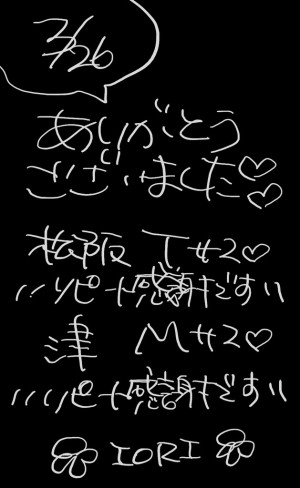 2/26
ありがとう
ございました♡♡
松阪 Tサ2♡
リピート感謝です
津 Mサ2♡
リピート感謝です
IORI